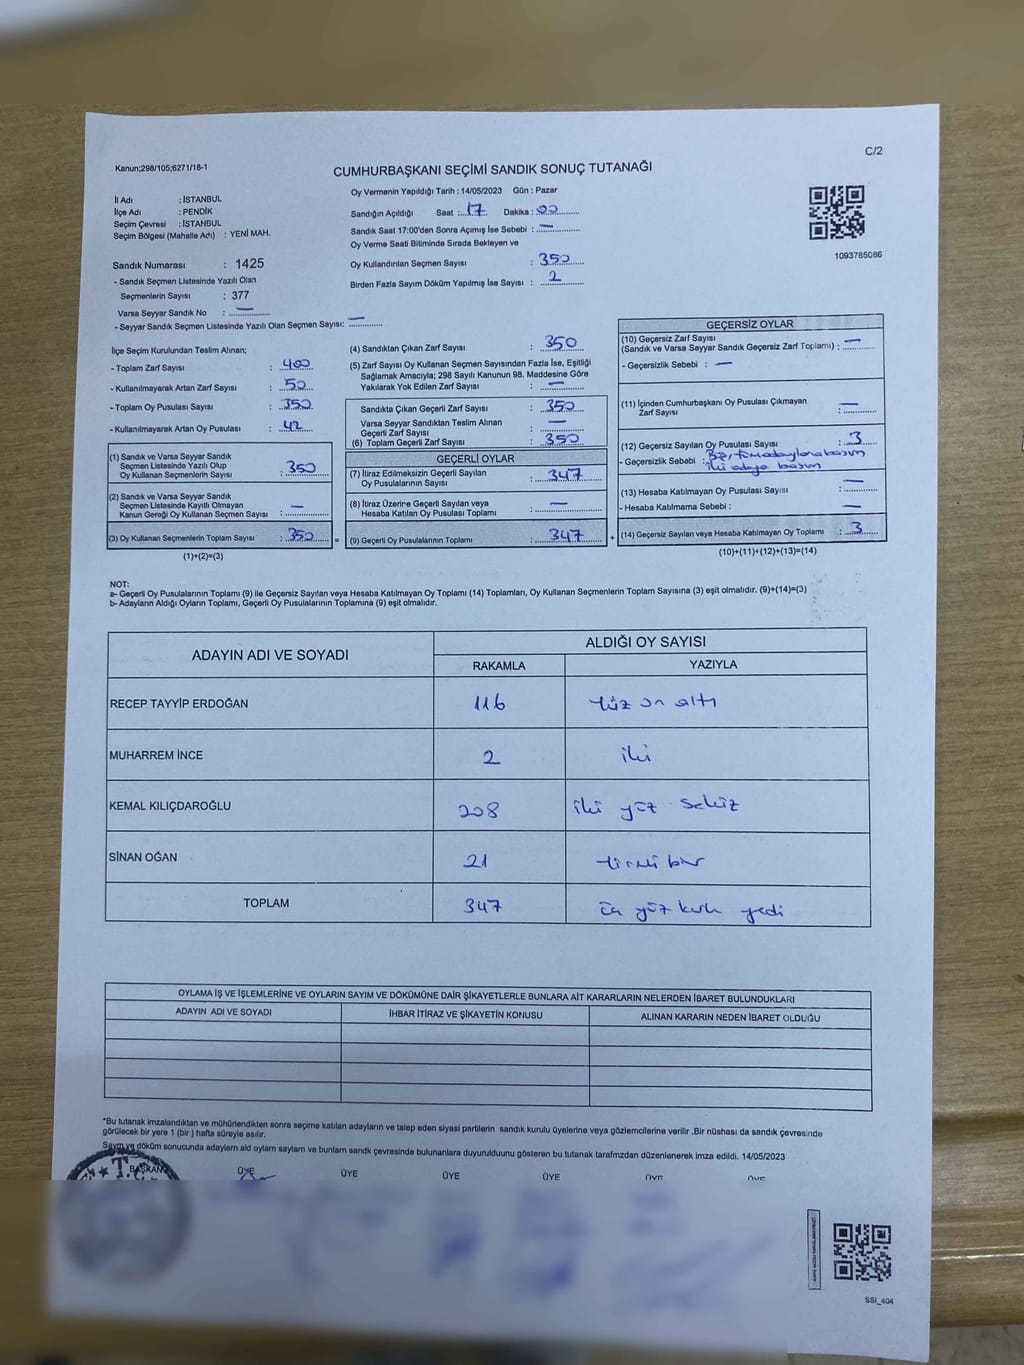 Kanun;298/105;6271/18-1
C/2
CUMHURBAŞKANI SEÇİMİ SANDIK SONUÇ TUTANAĞI
İl Adı : İSTANBUL
İlçe Adı : PENDİK
Seçim Çevresi : İSTANBUL
Seçim Bölgesi (Mahalle Adı) : YENİ MAH.
Sandık Numarası : 1425
- Sandık Seçmen Listesinde Yazılı Olan
Seçmenlerin Sayısı : 377
Varsa Seyyar Sandık No : —
- Seyyar Sandık Seçmen Listesinde Yazılı Olan Seçmen Sayısı: —
Oy Vermenin Yapıldığı Tarih : 14/05/2023 Gün : Pazar
Sandığın Açıldığı Saat : 17 Dakika : 00
Sandık Saat 17:00'den Sonra Açımış İse Sebebi : —
Oy Verme Saati Bitiminde Sırada Bekleyen ve
Oy Kullandırılan Seçmen Sayısı : 350
Birden Fazla Sayım Döküm Yapılmış İse Sayısı : 2
1093785086
İlçe Seçim Kurulundan Teslim Alınan;
- Toplam Zarf Sayısı : 400
- Kullanılmayarak Artan Zarf Sayısı : 50
- Toplam Oy Pusulası Sayısı : 350
- Kullanılmayarak Artan Oy Pusulası : 42
(1) Sandık ve Varsa Seyyar Sandık
Seçmen Listesinde Yazılı Olup
Oy Kullanan Seçmenlerin Sayısı : 350
(2) Sandık ve Varsa Seyyar Sandık
Seçmen Listesinde Kayıtlı Olmayan
Kanun Gereği Oy Kullanan Seçmen Sayısı : —
(3) Oy Kullanan Seçmenlerin Toplam Sayısı : 350 =
(1)+(2)=(3)
(4) Sandıktan Çıkan Zarf Sayısı : 350
(5) Zarf Sayısı Oy Kullanan Seçmen Sayısından Fazla İse, Eşitliği
Sağlamak Amacıyla; 298 Sayılı Kanunun 98. Maddesine Göre
Yakılarak Yok Edilen Zarf Sayısı : —
Sandıkta Çıkan Geçerli Zarf Sayısı : 350
Varsa Seyyar Sandıktan Teslim Alınan
Geçerli Zarf Sayısı : —
(6) Toplam Geçerli Zarf Sayısı : 350
GEÇERLİ OYLAR
(7) İtiraz Edilmeksizin Geçerli Sayılan
Oy Pusulasının Sayısı : 347
(8) İtiraz Üzerine Geçerli Sayılan veya
Hesaba Katılan Oy Pusulası Toplamı : —
(9) Geçerli Oy Pusulalarının Toplamı : 347 +
GEÇERSİZ OYLAR
(10) Geçersiz Zarf Sayısı
(Sandık ve Varsa Seyyar Sandık Geçersiz Zarf Toplamı) : —
- Geçersizlik Sebebi : —
(11) İçinden Cumhurbaşkanı Oy Pusulası Çıkmayan
Zarf Sayısı : —
(12) Geçersiz Sayılan Oy Pusulası Sayısı : 3
- Geçersizlik Sebebi :
(13) Hesaba Katılmayan Oy Pusulası Sayısı : —
- Hesaba Katılmama Sebebi : —
(14) Geçersiz Sayılan veya Hesaba Katılmayan Oy Toplamı : 3
(10)+(11)+(12)+(13)=(14)
NOT:
a- Geçerli Oy Pusulalarının Toplamı (9) ile Geçersiz Sayılan veya Hesaba Katılmayan Oy Toplamı (14) Toplamları, Oy Kullanan Seçmenlerin Toplam Sayısına (3) eşit olmalıdır. (9)+(14)=(3)
b- Adayların Aldığı Oyların Toplamı, Geçerli Oy Pusulalarının Toplamına (9) eşit olmalıdır.
ADAYIN ADI VE SOYADI ALDIĞI OY SAYISI
RAKAMLA YAZIYLA
RECEP TAYYİP ERDOĞAN 116 Yüz on altı
MUHARREM İNCE 2 iki
KEMAL KILIÇDAROĞLU 208 iki yüz sekiz
SİNAN OĞAN 21 Yirmi bir
TOPLAM 347 üç yüz kırk yedi
OYLAMA İŞ VE İŞLEMLERİNE VE OYLARIN SAYIM VE DÖKÜMÜNE DAİR ŞİKAYETLERLE BUNLARA AİT KARARLARIN NELERDEN İBARET BULUNDUKLARI
ADAYIN ADI VE SOYADI İHBAR İTİRAZ VE ŞİKAYETİN KONUSU ALINAN KARARIN NEDEN İBARET OLDUĞU
*Bu tutanak imzalandıktan ve mühürlendikten sonra seçime katılan adayların ve talep eden siyasi partilerin sandık kurulu üyelerine veya gözlemcilerine verilir .Bir nüshası da sandık çevresinde
görülecek bir yere 1 (bir ) hafta süreyle asılır.
Sayım ve döküm sonucunda adayların ald oylarn sayların ve bunların sandk çevresinde bulunanlara duyurulduunu gösteren bu tutanak tarafmzdan düzenlenerek imza edildi. 14/05/2023
BAŞKAN ÜYE ÜYE ÜYE ÜYE ÜYE ÜYE
SSI_404